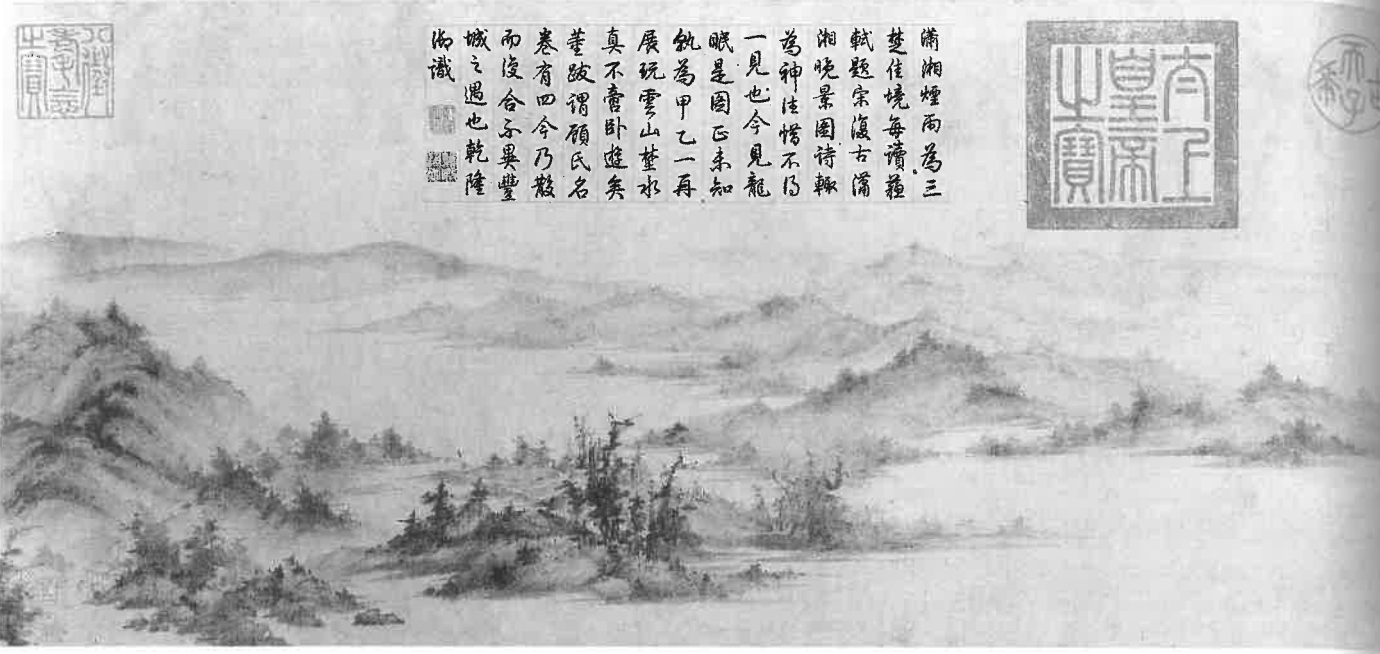 古希
天子
太上
皇帝
之寶
瀟湘煙雨為三
楚佳境每讀蘓
軾題宋復古瀟
湘晚景圖詩輒
為神往惜不得
一見也今見龍
眠是圖正未知
孰為甲乙一再
展玩雲山楚水
真不啻卧遊矣
董跋謂顧氏名
卷有四今乃散
而復合不異豐
城之遇也乾隆
御識
八徵
耄念
之寶